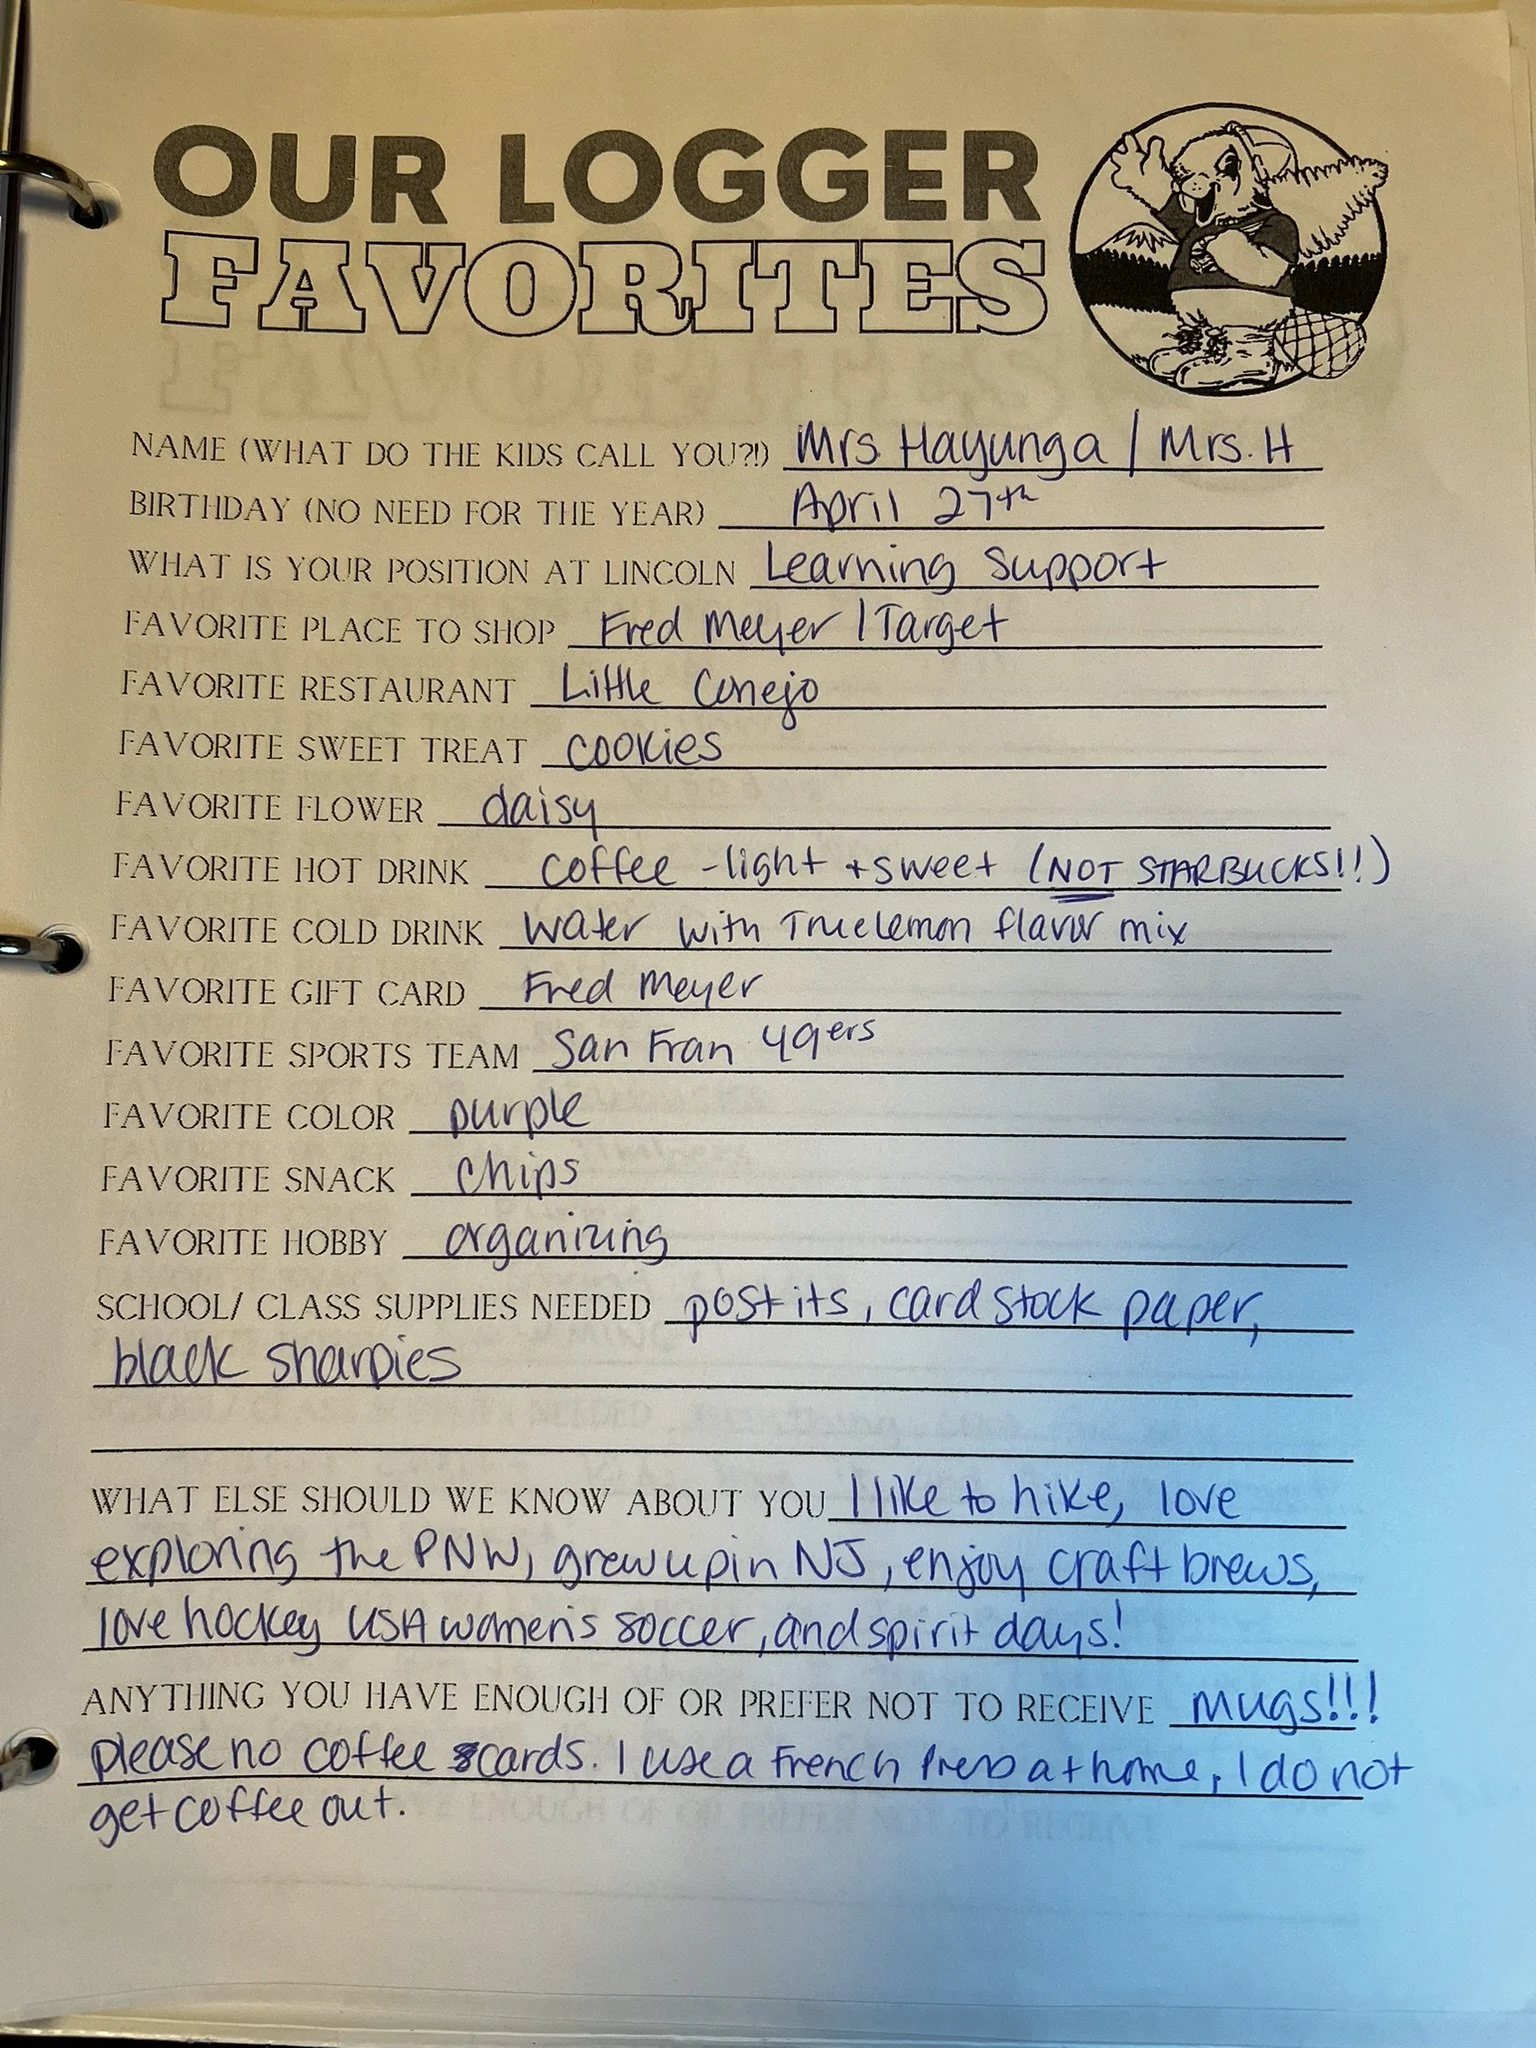 OUR LOGGER
FAVORITES
NAME (WHAT DO THE KIDS CALL YOU?!) Mrs Hayunga / Mrs. H
BIRTHDAY (NO NEED FOR THE YEAR) April 27th
WHAT IS YOUR POSITION AT LINCOLN Learning Support
FAVORITE PLACE TO SHOP Fred Meyer / Target
FAVORITE RESTAURANT Little Conejo
FAVORITE SWEET TREAT cookies
FAVORITE FLOWER daisy
FAVORITE HOT DRINK coffee - light + sweet (NOT STARBUCKS!!)
FAVORITE COLD DRINK water with True lemon flavor mix
FAVORITE GIFT CARD Fred Meyer
FAVORITE SPORTS TEAM San Fran 49ers
FAVORITE COLOR purple
FAVORITE SNACK chips
FAVORITE HOBBY organizing
SCHOOL/ CLASS SUPPLIES NEEDED post its, card stock paper,
black sharpies
WHAT ELSE SHOULD WE KNOW ABOUT YOU I like to hike, love
exploring the PNW, grew up in NJ, enjoy craft brews,
love hockey USA women's soccer, and spirit days!
ANYTHING YOU HAVE ENOUGH OF OR PREFER NOT TO RECEIVE mugs!!!
please no coffee cards. I use a French Press at home, I do not
get coffee out.